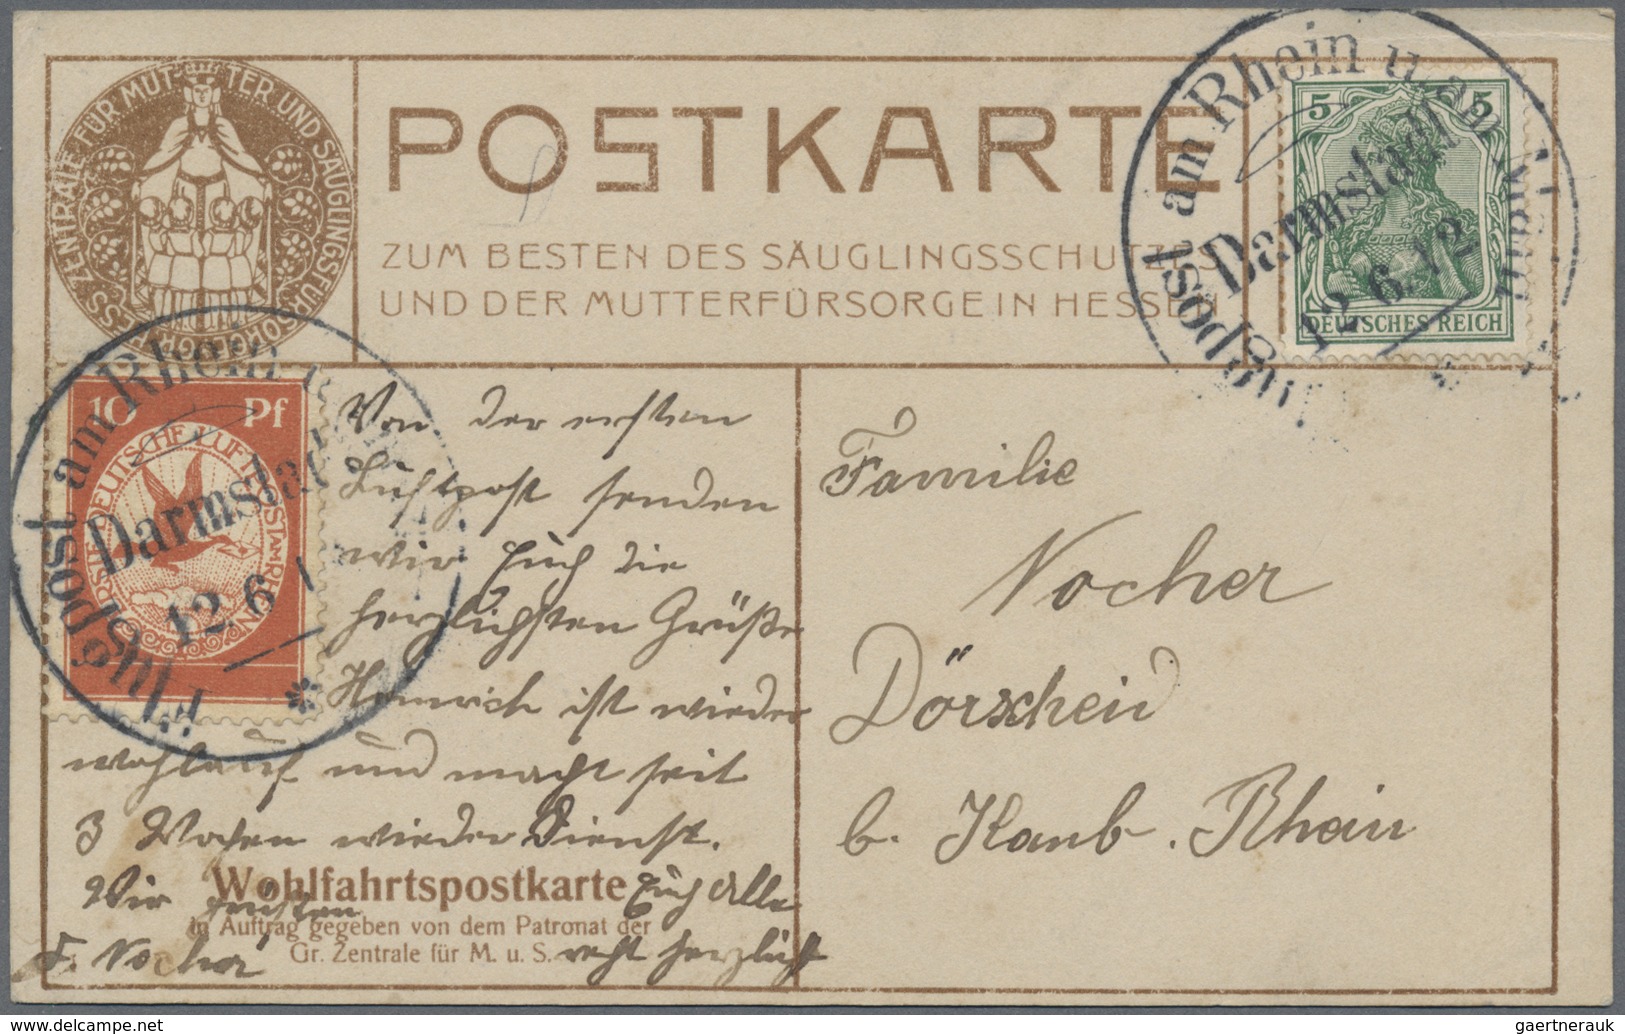 POSTKARTE
ZUM BESTEN DES SÄUGLINGSSCHUTZES
UND DER MUTTERFÜRSORGE IN HESSEN
GR. HESS. ZENTRALE FÜR MUTTER UND SÄUGLINGSFÜRSORGE
Flugpost am Rhein u. a. Main
Darmstadt
12 6. 12
5 5
DEUTSCHES REICH
Flugpost am Rhein u.
Darmstadt
12 6 1
10 Pf
ERSTE DEUTSCHE LUFTPOST AM RHEIN
Von der ersten
Luftpost senden
wir Euch die
herzlichsten Grüße
Heinrich ist wieder
wohlauf und macht seit
3 Wochen wieder Dienst.
Wir grüßen Euch Alle
F. Nocher recht herzlich
Wohlfahrtspostkarte
In Auftrag gegeben von dem Patronat der
Gr. Zentrale für M. u. S.
Familie
Nocher
Dörscheid
b. Kaub. Rhein
gaertnerauk